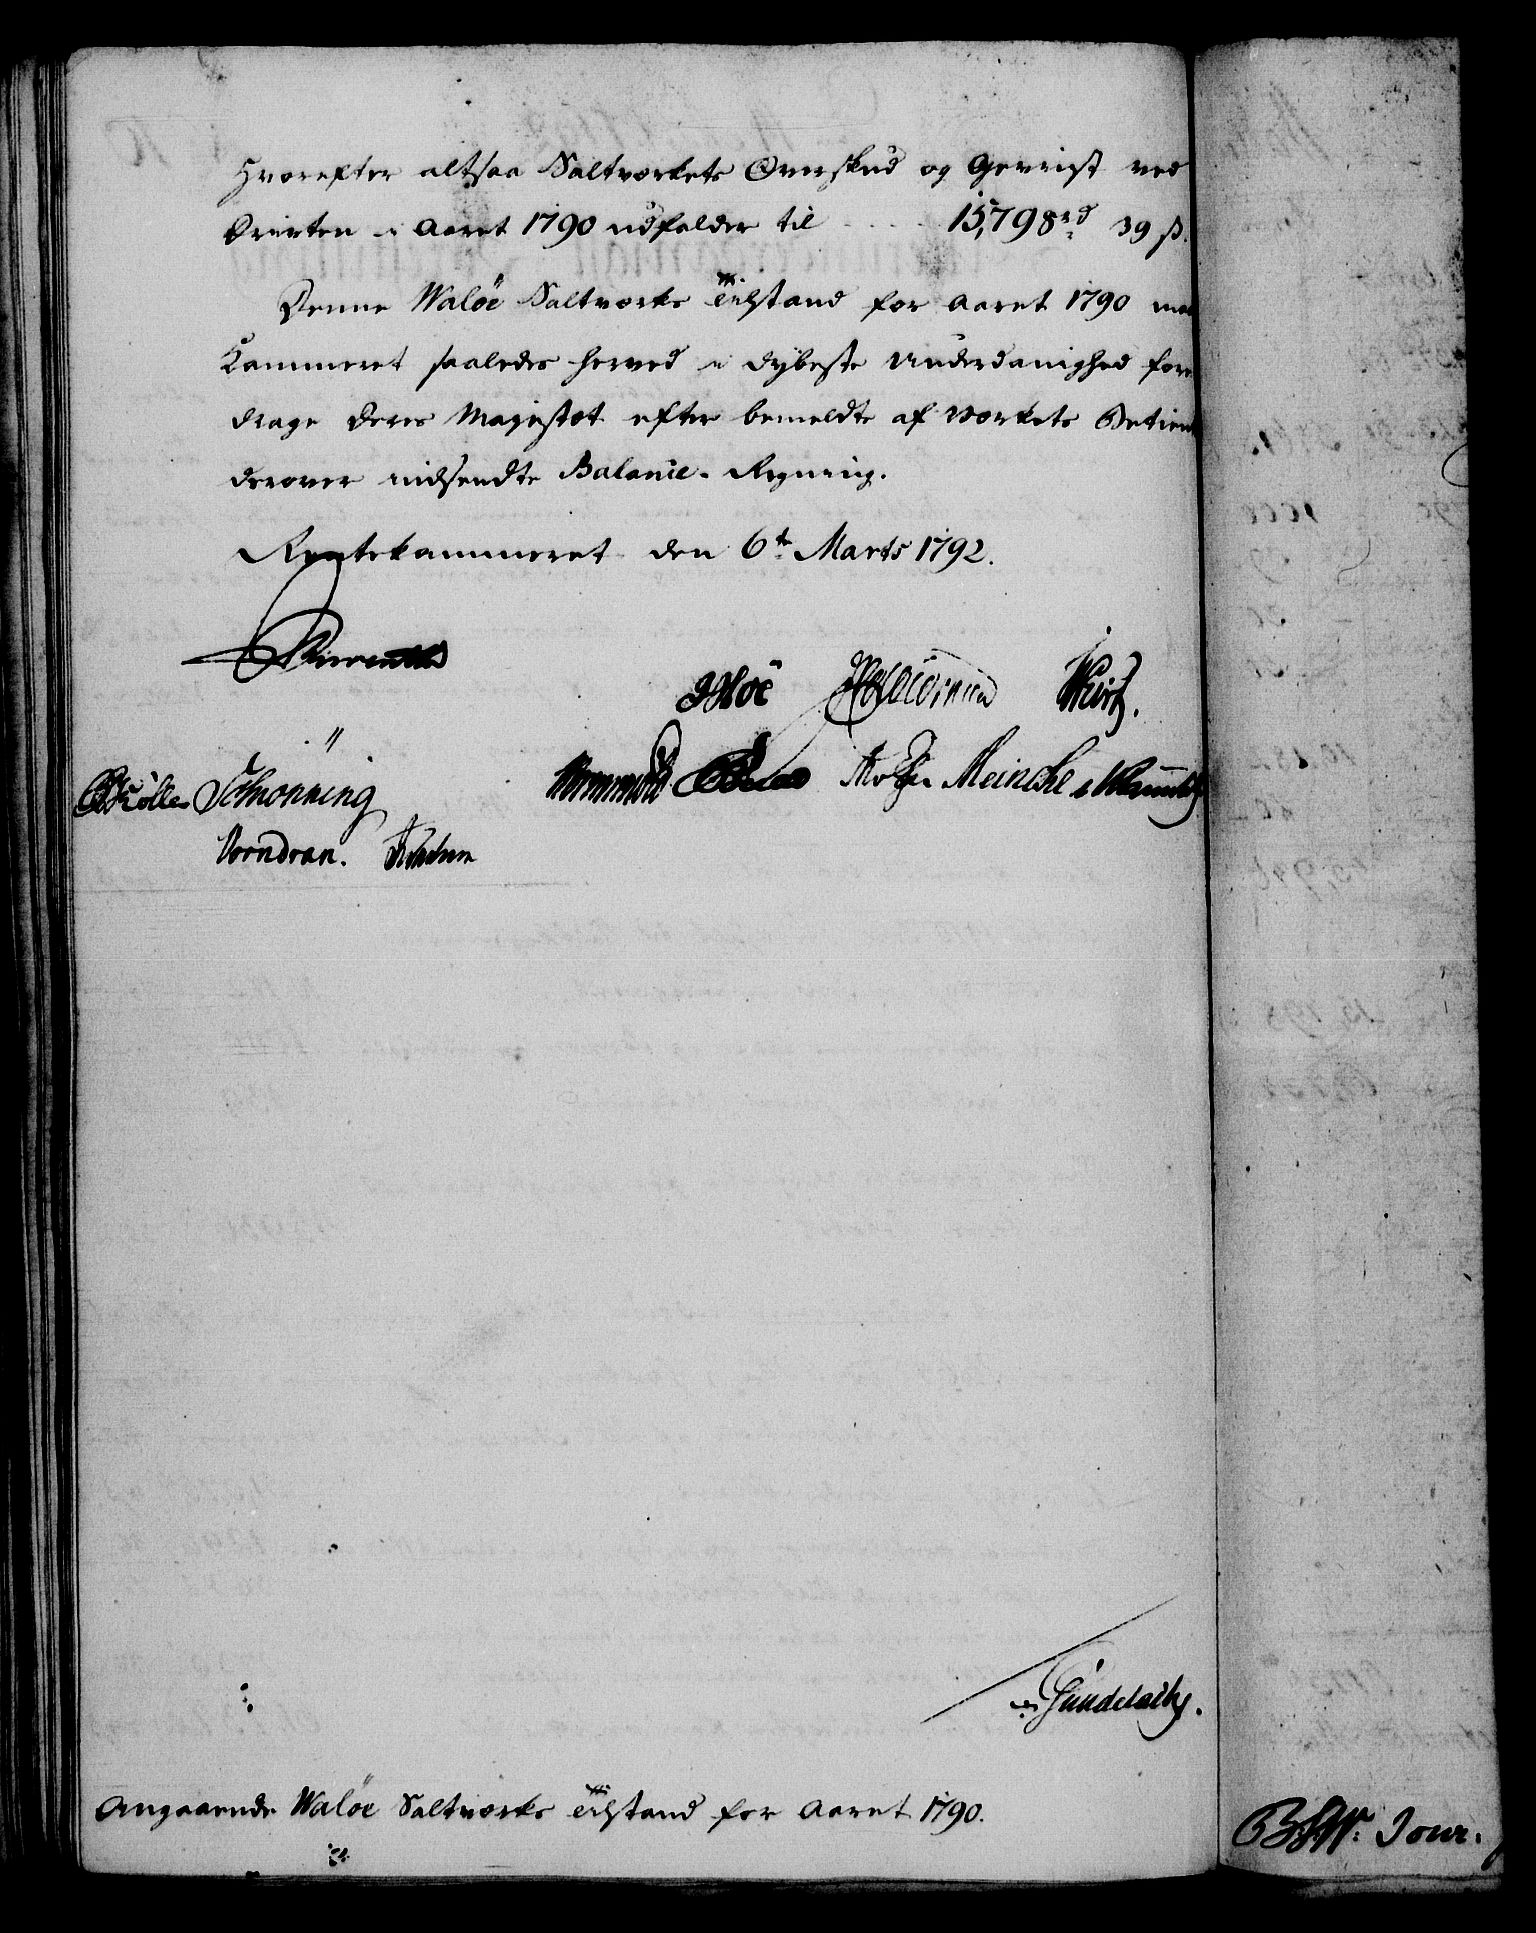 Hvorefter altsaa Saltværkets Overskud og Gevinst ved
Driften i Aaret 1790 udfalder til 15,798 rd 39 ß.
Denne Waløe Saltværks Tilstand for Aaret 1790 maa
Kammeret saaledes herved i dybeste Underdanighed fore
drage Deres Majestæt efter bemeldte af Værkets Betient
derover indsendte Balance-Regning.
Rentekammeret den 6te Marts 1792.
Wurtz.
Kølle Schrönning Meincke
Vorndran.
Gundelach.
Angaaende Waløe Saltværks Tilstand for Aaret 1790.
Jour.